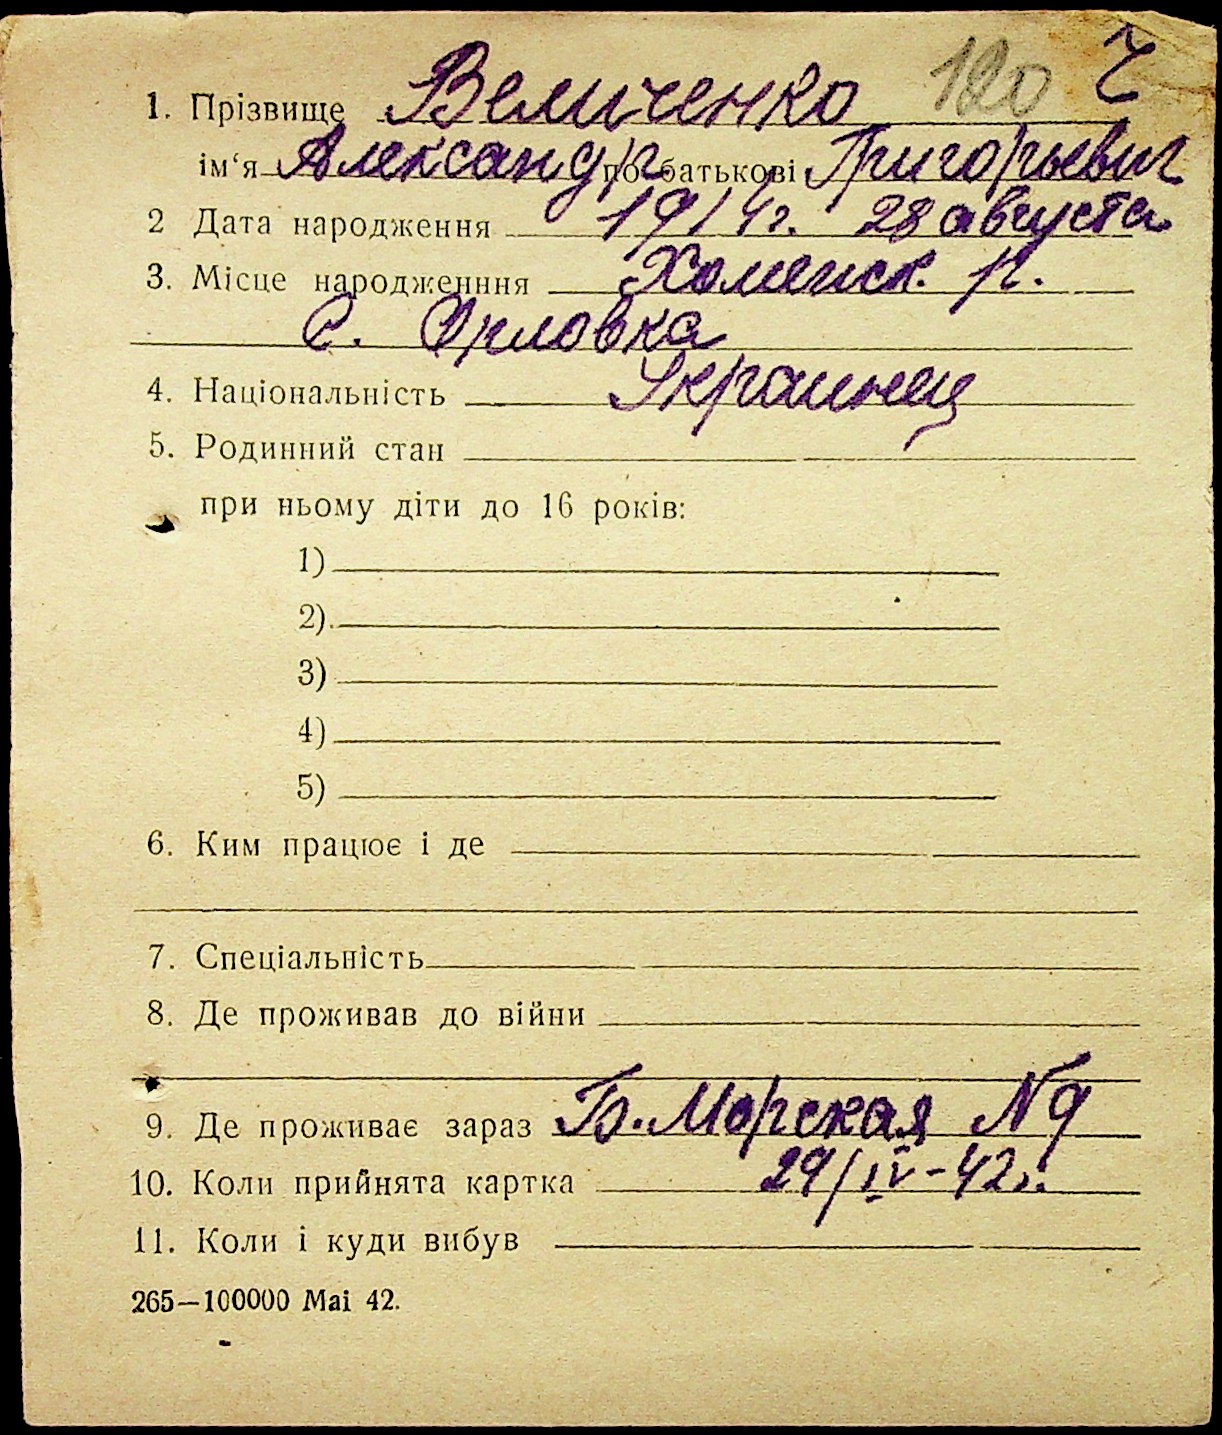 120 Ч
1. Прізвище Величенко
ім‘я Александр по батькові Григорьевич
2 Дата народження 1914г. 28 августа
3. Місце народженння Холменск. р.
с. Орловка
4. Національність Украинец
5. Родинний стан
при ньому діти до 16 років:
1)
2)
3)
4)
5)
6. Ким працює і де
7. Спеціальність
8. Де проживав до війни
9. Де проживає зараз Б. Морская N 9
10. Коли прийнята картка 29/IV-42г.
11. Коли і куди вибув
265—100000 Mai 42.